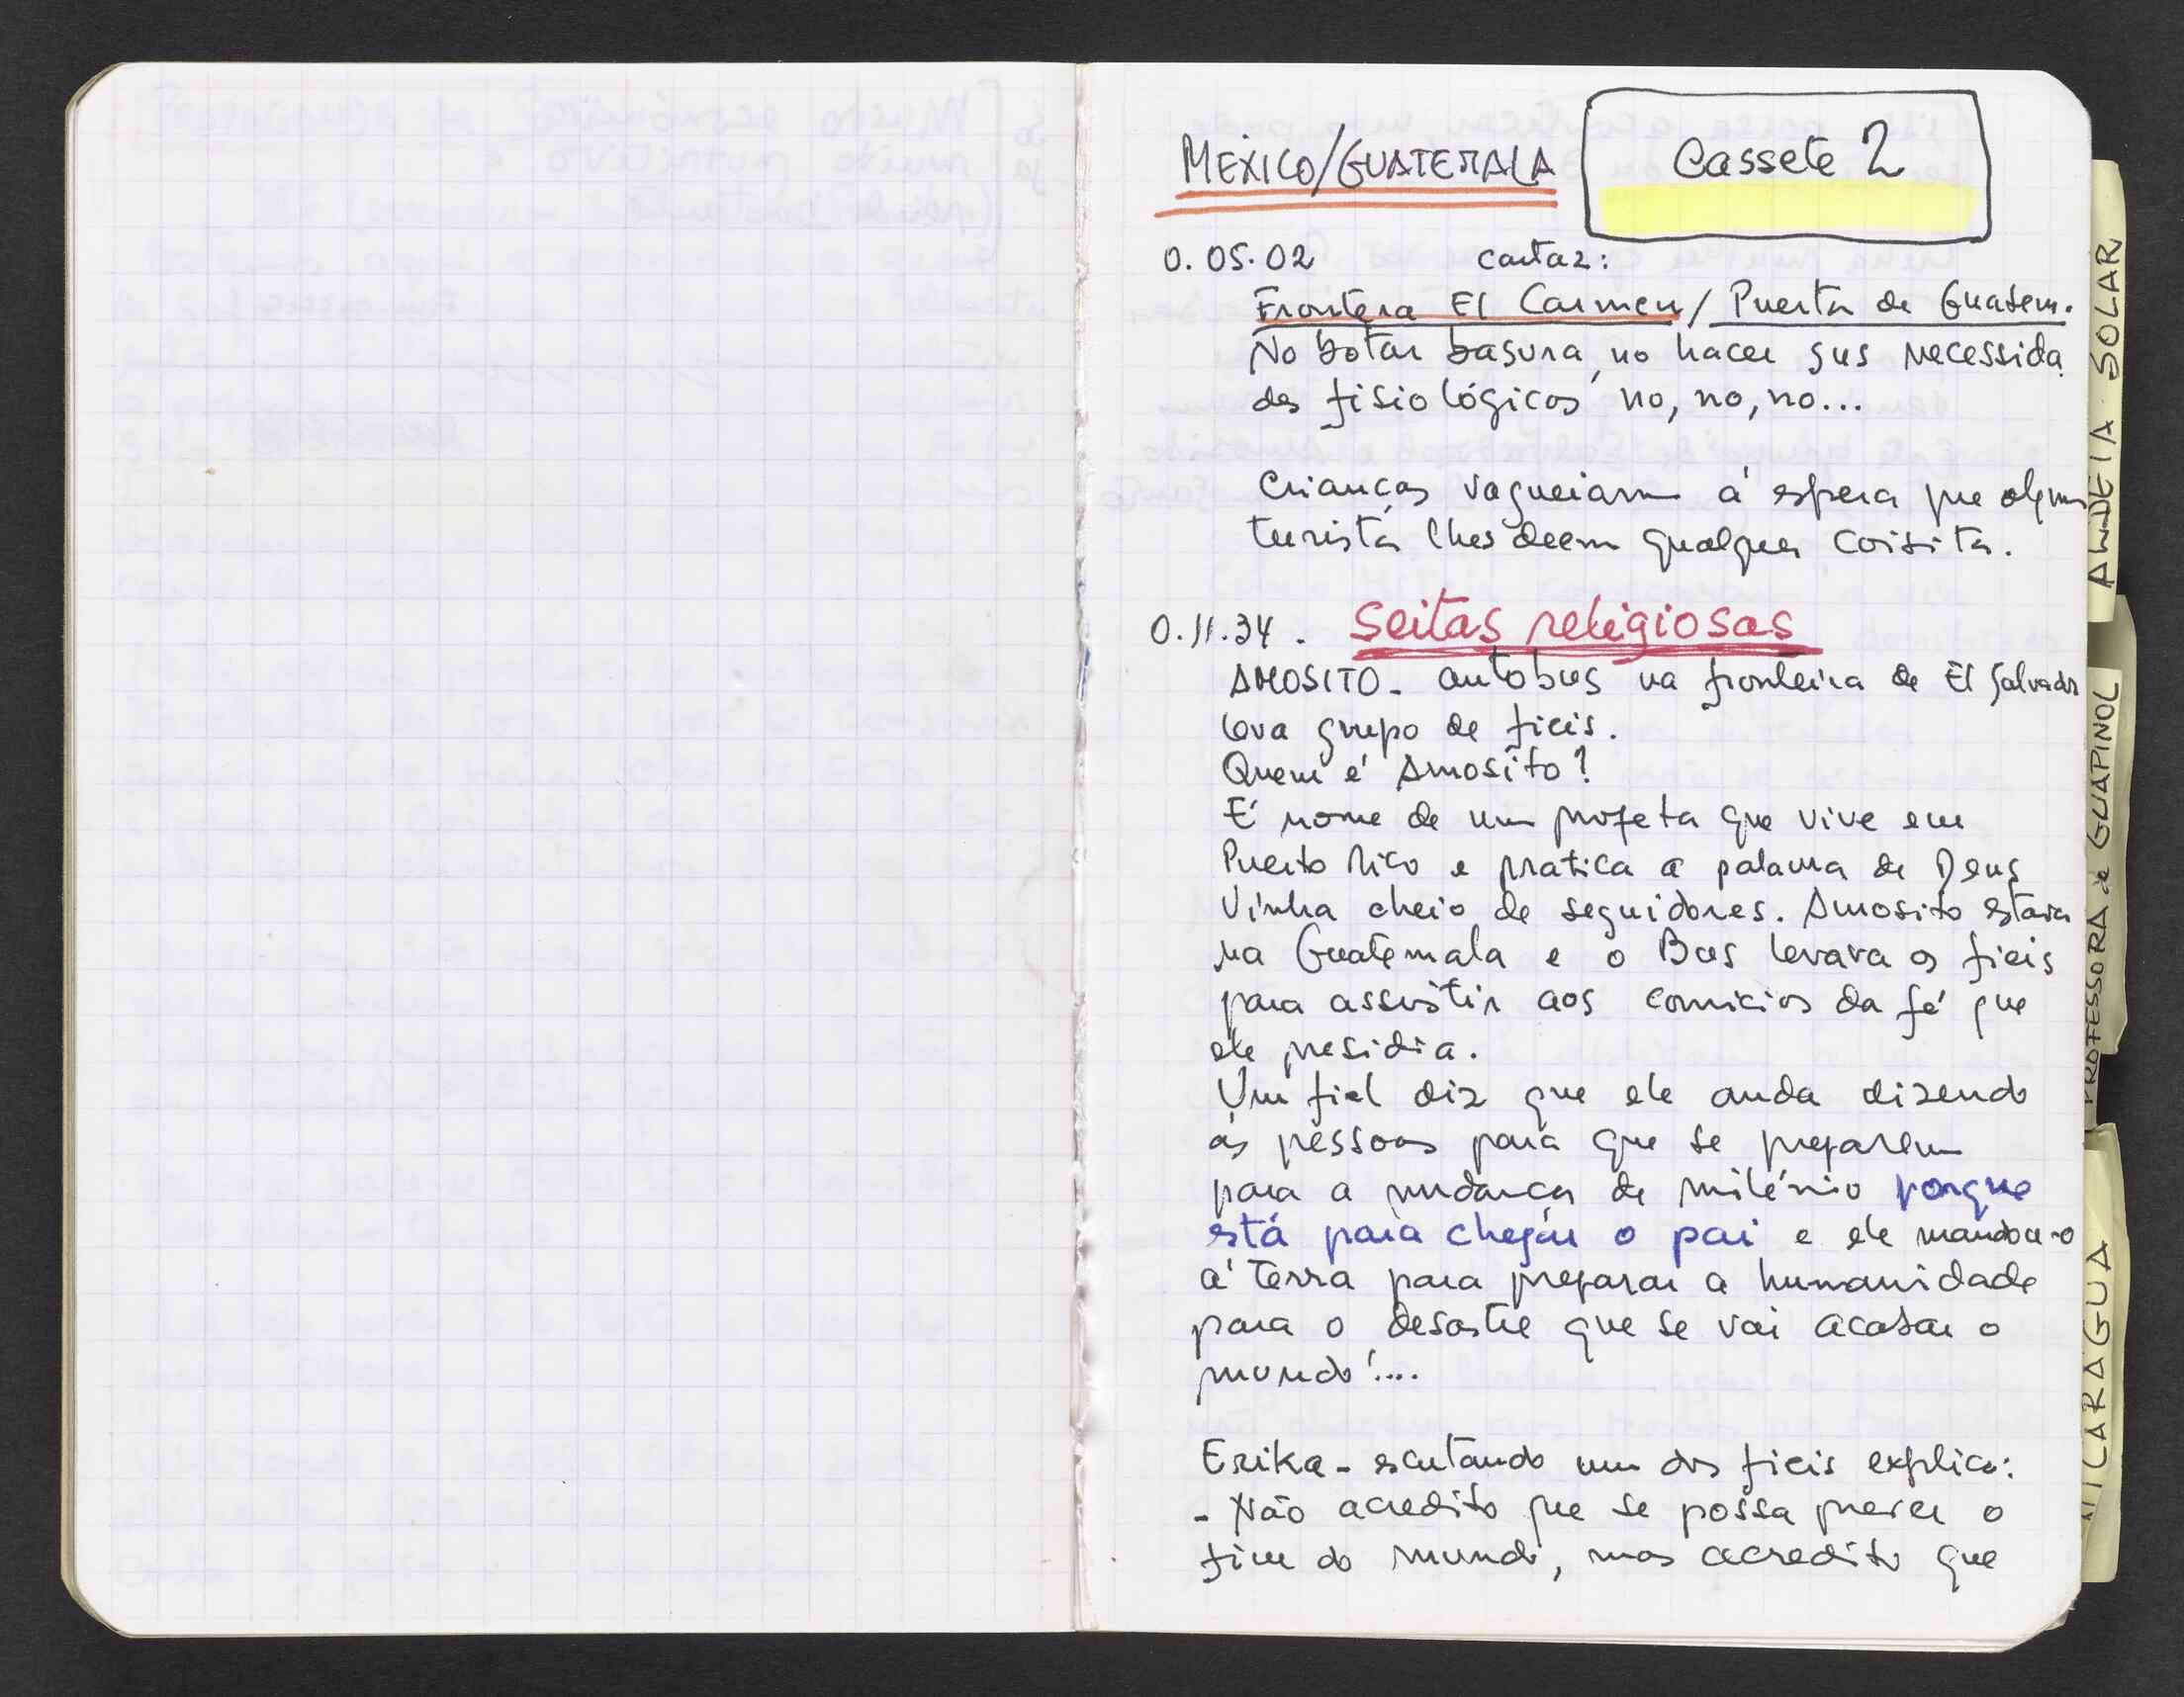 MEXICO/GUATEMALA
Cassete 2
0.05.02 cartaz:
Frontera El Carmen / Puerta de Guatem.
No botar basura, no hacer sus necessida
des fisiológicos no, no, no...
Crianças vagueiam á espera que algum
turista lhes deem qualquer coisita.
0.11.34. Seitas religiosas
AMOSITO - autobus na fronteira de El Salvador
leva grupo de fieis.
Quem é Amosito?
É nome de um profeta que vive em
Puerto Rico e pratica a palavra de Deus
Vinha cheio de seguidores. Amosito estava
na Guatemala e o Bus levava os fieis
para assistir aos comicios da fé que
ele presidia.
Um fiel diz que ele anda dizendo
ás pessoas para que se preparem
para a mudança de milénio porque
está para chegar o pai e ele mandou-o
á terra para preparar a humanidade
para o desastre que se vai acabar o
mundo!...
Erika - escutando um dos fieis explica:
- Não acredito que se possa prever o
fim do mundo, mas acredito que
ALDEIA SOLAR
PROFESSORA de GUAPINOL
NICARAGUA